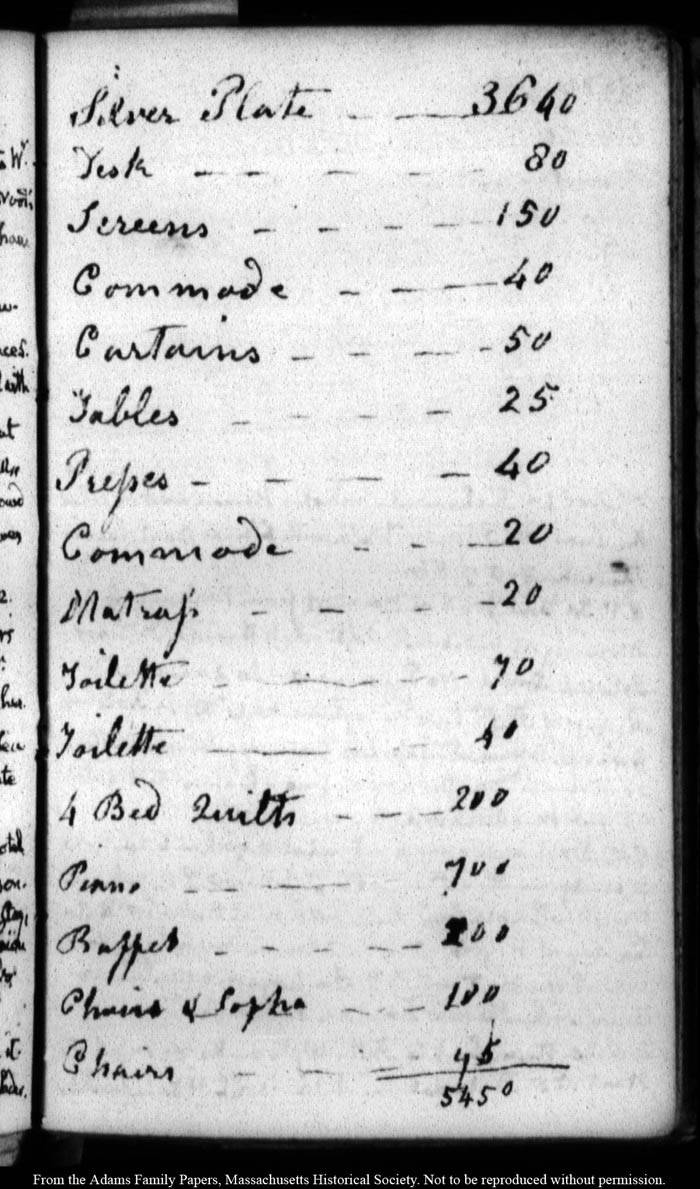 Silver Plate - - 3640
Desk - - - - 80
Screens - - - - 150
Commode - - - 40
Curtains - - - - 50
Tables - - - - 25
Preſses - - - - 40
Commode - - - 20
Matraſs - - - - 20
Toilette - - - 70
Toilette - - 40
4 Bed Quilts - - - 200
Piano - - 700
Buffet - - - - 200
Chairs & Sopha - - - 100
Chairs - - 75
5450
From the Adams Family Papers, Massachusetts Historical Society. Not to be reproduced without permission.